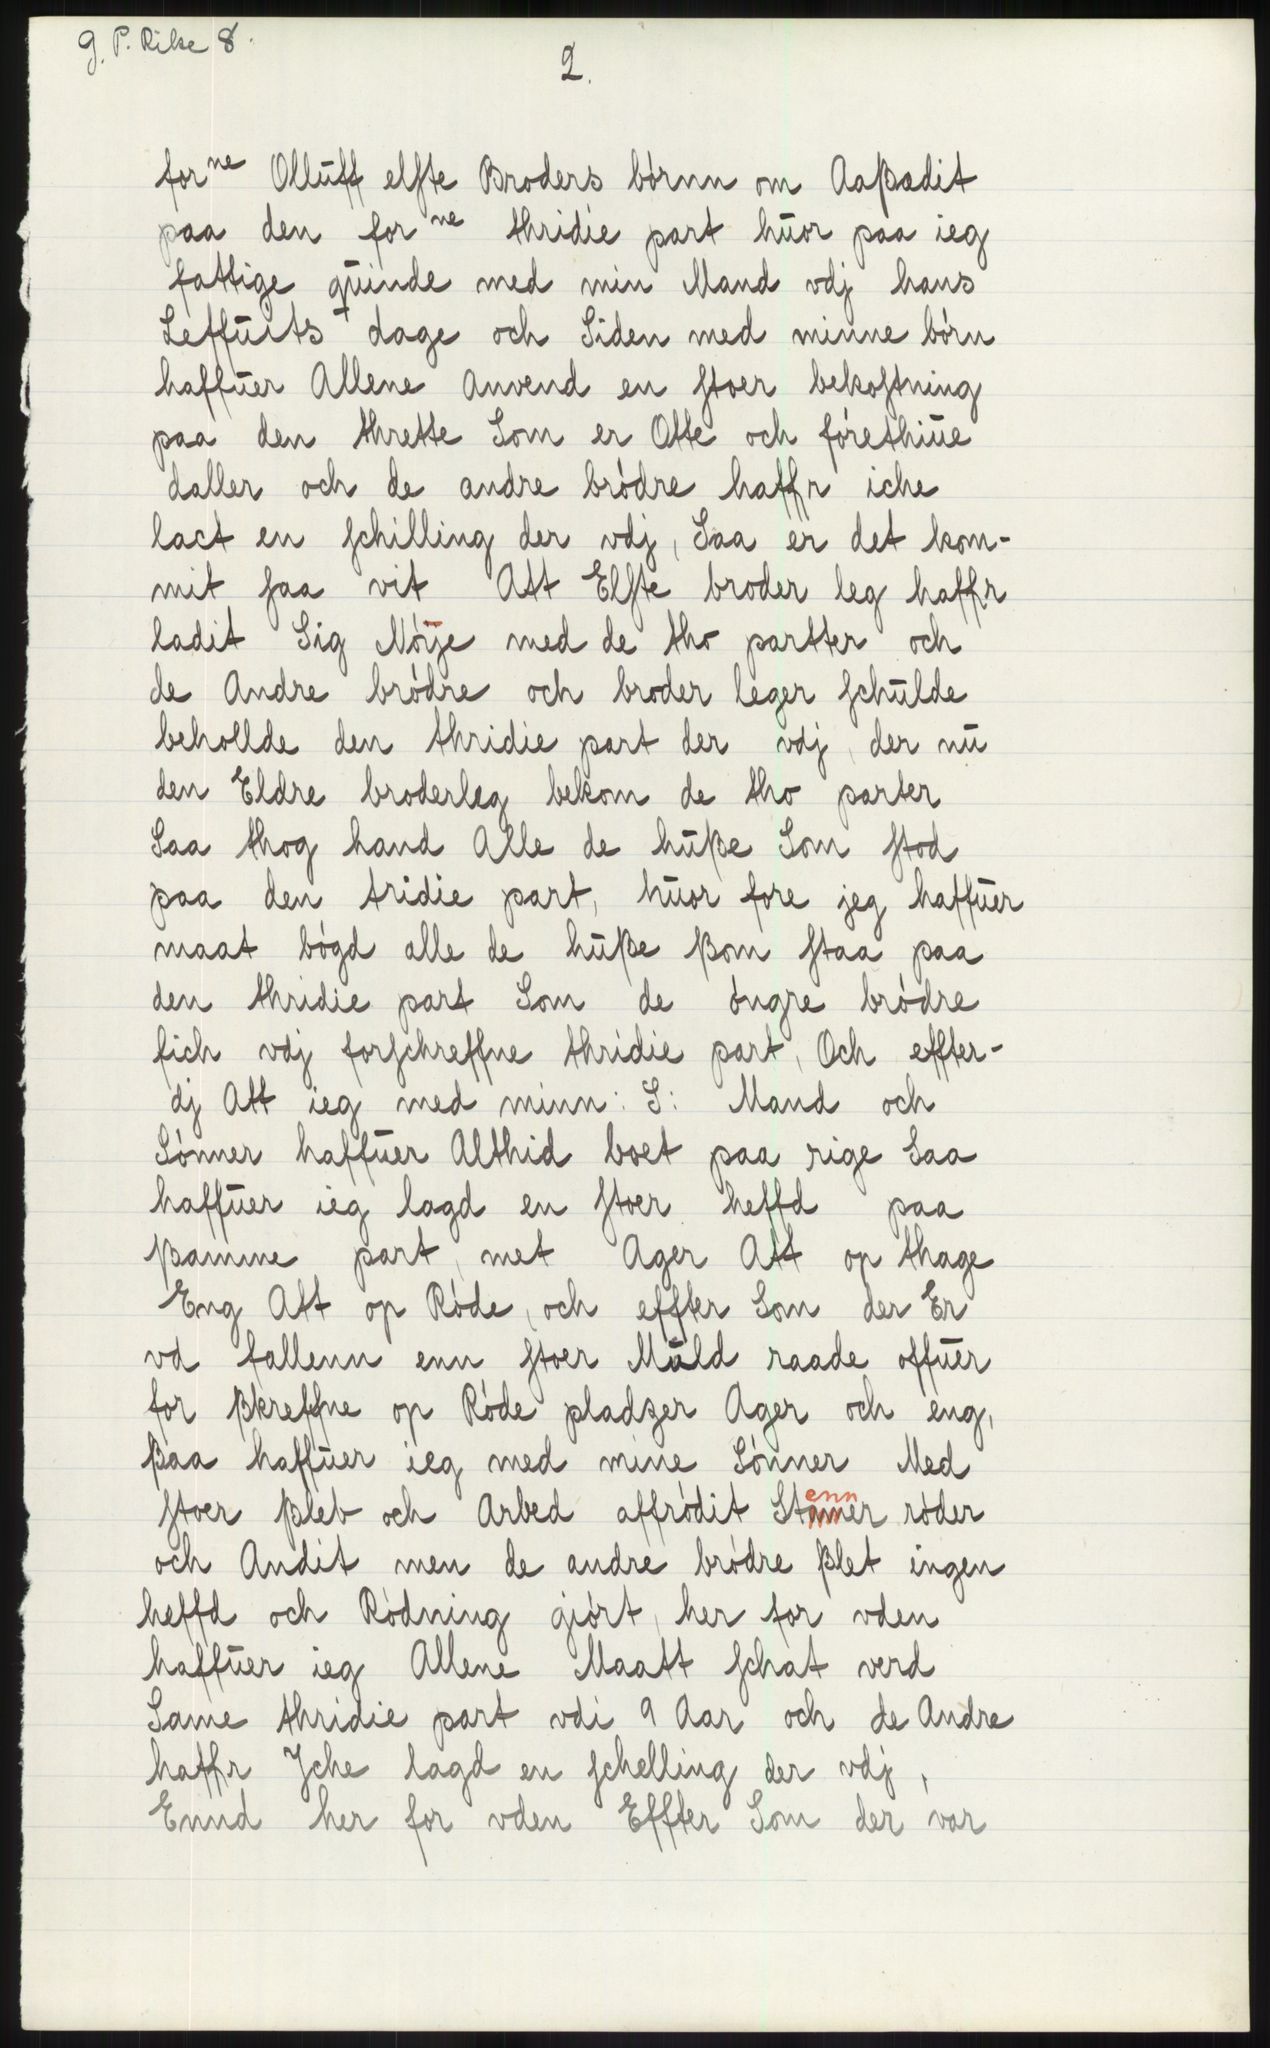 G. P. Rike 8.
2.
for ne Olluff elste Broders børnn om Aaßædit
paa den for ne thridie part huor paa ieg
fattige quinde med min Mand vdj hans
Leffuits dage och Siden med minne børn
haffuer Allene anvend en stoer bekostning
paa den thrette Som er Otte och førethiue
daller och de andre brødre haffr iche
lact en schilling der vdj, Saa er det kom-
mit saa vit Att Elste broder leg haffr
ladit Sig Nøije med de tho partter och
de Andre brødre och broder leger schulde
behollde den thridie part der vdj, der nu
den Eldre broderleg bekom de tho parter
Saa thog hand Alle de huße Som stod
paa den tridie part, huor fore jeg haffuer
maat bøgd alle de huße ßom staa paa
den thridie part Som de øngre brødre
fich vdj forschreffne thridie part, Och effter-
dj Att ieg med minn: S: Mand och
Sønner haffuer Althid boet paa rige Saa
haffuer ieg lagd en stoer heffd paa
ßamme part, met Ager Att op thage
Eng Att op Røde, och effter Som der Er
vd fallenn enn stoer Muld raade offuer
for ßkreffne op Røde pladzer Ager och eng,
ßaa haffuer ieg med mine Sønner Med
stoer ßleb och Arbed affrødit Stenner røder
och Andit men de andre brødre ßlet ingen
heffd och Rødning giørt, her for vden
haffuer ieg Allene Maatt schat verd
Same thridie part vdi 9 Aar och de Andre
haffr Jche lagd en schelling der vdj,
Ennd her for vden Effter Som der var